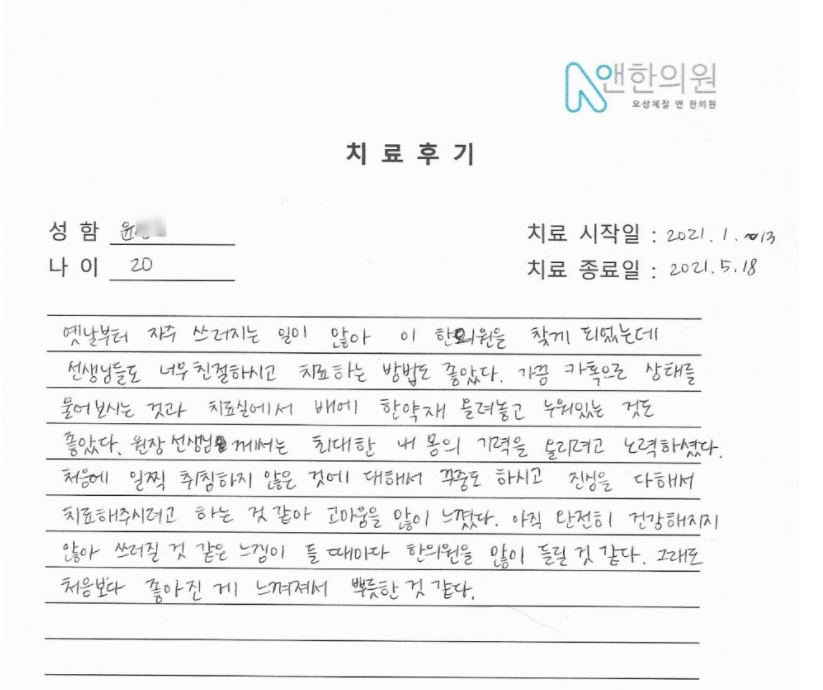 앤한의원
오상체질 앤 한의원
치료후기
성함 윤
치료 시작일 : 2021. 1. 13
나이 20
치료 종료일 : 2021. 5. 18
옛날부터 자주 쓰러지는 일이 많아 이 한의원을 찾게 되었는데
선생님들도 너무 친절하시고 치료하는 방법도 좋았다. 가끔 카톡으로 상태를
물어보시는 것과 치료실에서 배에 한약재 올려놓고 누워있는 것도
좋았다. 원장 선생님께서는 최대한 내 몸의 기력을 올리려고 노력하셨다.
처음에 일찍 취침하지 않은 것에 대해서 꾸중도 하시고 진심을 다해서
치료해주시려고 하는 것 같아 고마움을 많이 느꼈다. 아직 완전히 건강해지지
않아 쓰러질 것 같은 느낌이 들 때마다 한의원을 많이 들릴 것 같다. 그래도
처음보다 좋아진 게 느껴져서 뿌듯한 것 같다.